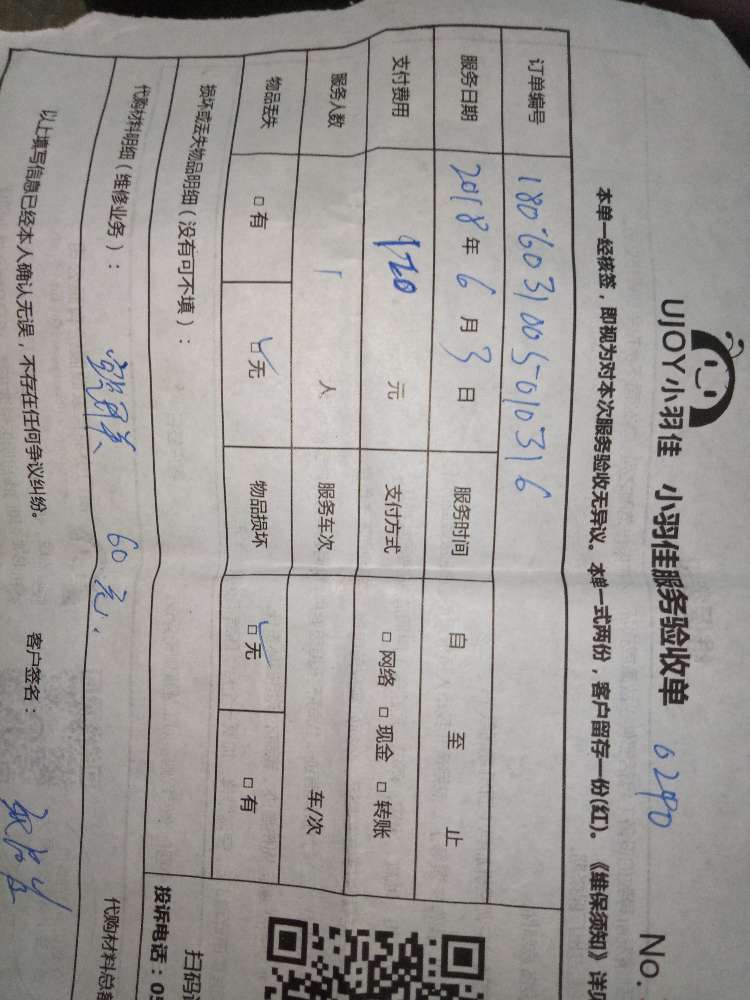 UJOY小羽佳 小羽佳服务验收单 0290 No.
本单一经核签，即视为对本次服务验收无异议。本单一式两份，客户留存一份(红)。《维保须知》详
订单编号 180603100501031 6
服务日期 2018 年 6 月 3 日 服务时间 自 至 止
支付费用 元 支付方式 □ 网络 □ 现金 □ 转账
服务人数 1 人 服务车次 车/次
物品丢失 □ 有 ☑ 无 物品损坏 ☑ 无 □ 有
损坏或丢失物品明细（没有可不填）：
代购材料明细（维修业务）： 60元. 代购材料总
以上填写信息已经本人确认无误，不存在任何争议纠纷。 客户签名：
扫码
投诉电话：05